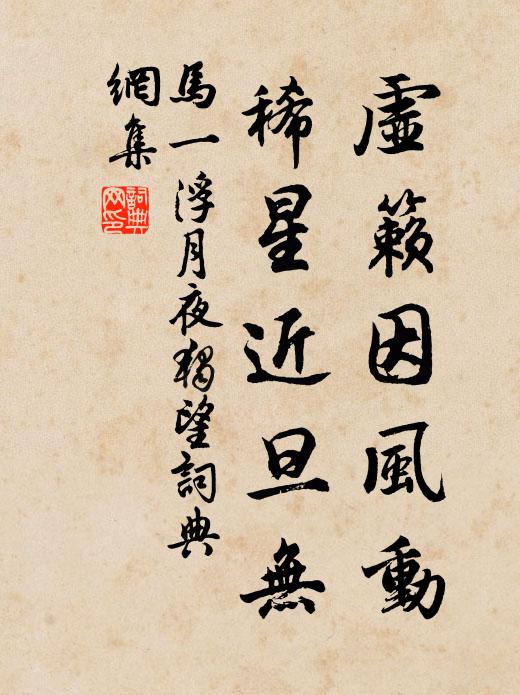 虛籟因風動
稀星近旦無
馬一浮月夜獨望詞典
網集
詞典网印